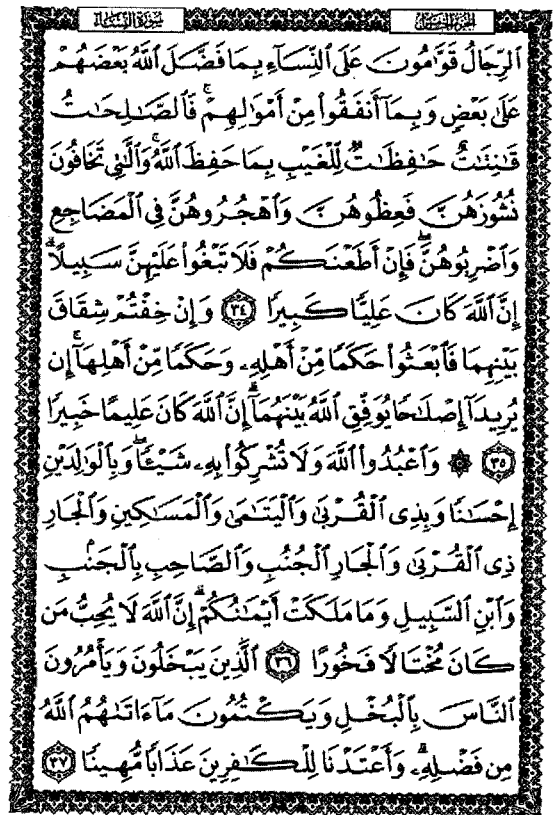 سورة النساء الجزء الخامس
ٱلرِّجَالُ قَوَّٰمُونَ عَلَى ٱلنِّسَآءِ بِمَا فَضَّلَ ٱللَّهُ بَعْضَهُمْ
عَلَىٰ بَعْضٍ وَبِمَآ أَنفَقُوا۟ مِنْ أَمْوَٰلِهِمْ ۚ فَٱلصَّٰلِحَٰتُ
قَٰنِتَٰتٌ حَٰفِظَٰتٌ لِّلْغَيْبِ بِمَا حَفِظَ ٱللَّهُ ۚ وَٱلَّٰتِى تَخَافُونَ
نُشُوزَهُنَّ فَعِظُوهُنَّ وَٱهْجُرُوهُنَّ فِى ٱلْمَضَاجِعِ
وَٱضْرِبُوهُنَّ ۖ فَإِنْ أَطَعْنَكُمْ فَلَا تَبْغُوا۟ عَلَيْهِنَّ سَبِيلًا ۗ
إِنَّ ٱللَّهَ كَانَ عَلِيًّا كَبِيرًا ٣٤ وَإِنْ خِفْتُمْ شِقَاقَ
بَيْنِهِمَا فَٱبْعَثُوا۟ حَكَمًا مِّنْ أَهْلِهِۦ وَحَكَمًا مِّنْ أَهْلِهَآ ۚ إِن
يُرِيدَآ إِصْلَٰحًا يُوَفِّقِ ٱللَّهُ بَيْنَهُمَآ ۗ إِنَّ ٱللَّهَ كَانَ عَلِيمًا خَبِيرًا
٣٥ ۞ وَٱعْبُدُوا۟ ٱللَّهَ وَلَا تُشْرِكُوا۟ بِهِۦ شَيْـًٔا ۖ وَبِٱلْوَٰلِدَيْنِ
إِحْسَٰنًا وَبِذِى ٱلْقُرْبَىٰ وَٱلْيَتَٰمَىٰ وَٱلْمَسَٰكِينِ وَٱلْجَارِ
ذِى ٱلْقُرْبَىٰ وَٱلْجَارِ ٱلْجُنُبِ وَٱلصَّاحِبِ بِٱلْجَنۢبِ
وَٱبْنِ ٱلسَّبِيلِ وَمَا مَلَكَتْ أَيْمَٰنُكُمْ ۗ إِنَّ ٱللَّهَ لَا يُحِبُّ مَن
كَانَ مُخْتَالًا فَخُورًا ٣٦ ٱلَّذِينَ يَبْخَلُونَ وَيَأْمُرُونَ
ٱلنَّاسَ بِٱلْبُخْلِ وَيَكْتُمُونَ مَآ ءَاتَىٰهُمُ ٱللَّهُ
مِن فَضْلِهِۦ ۗ وَأَعْتَدْنَا لِلْكَٰفِرِينَ عَذَابًا مُّهِينًا ٣٧